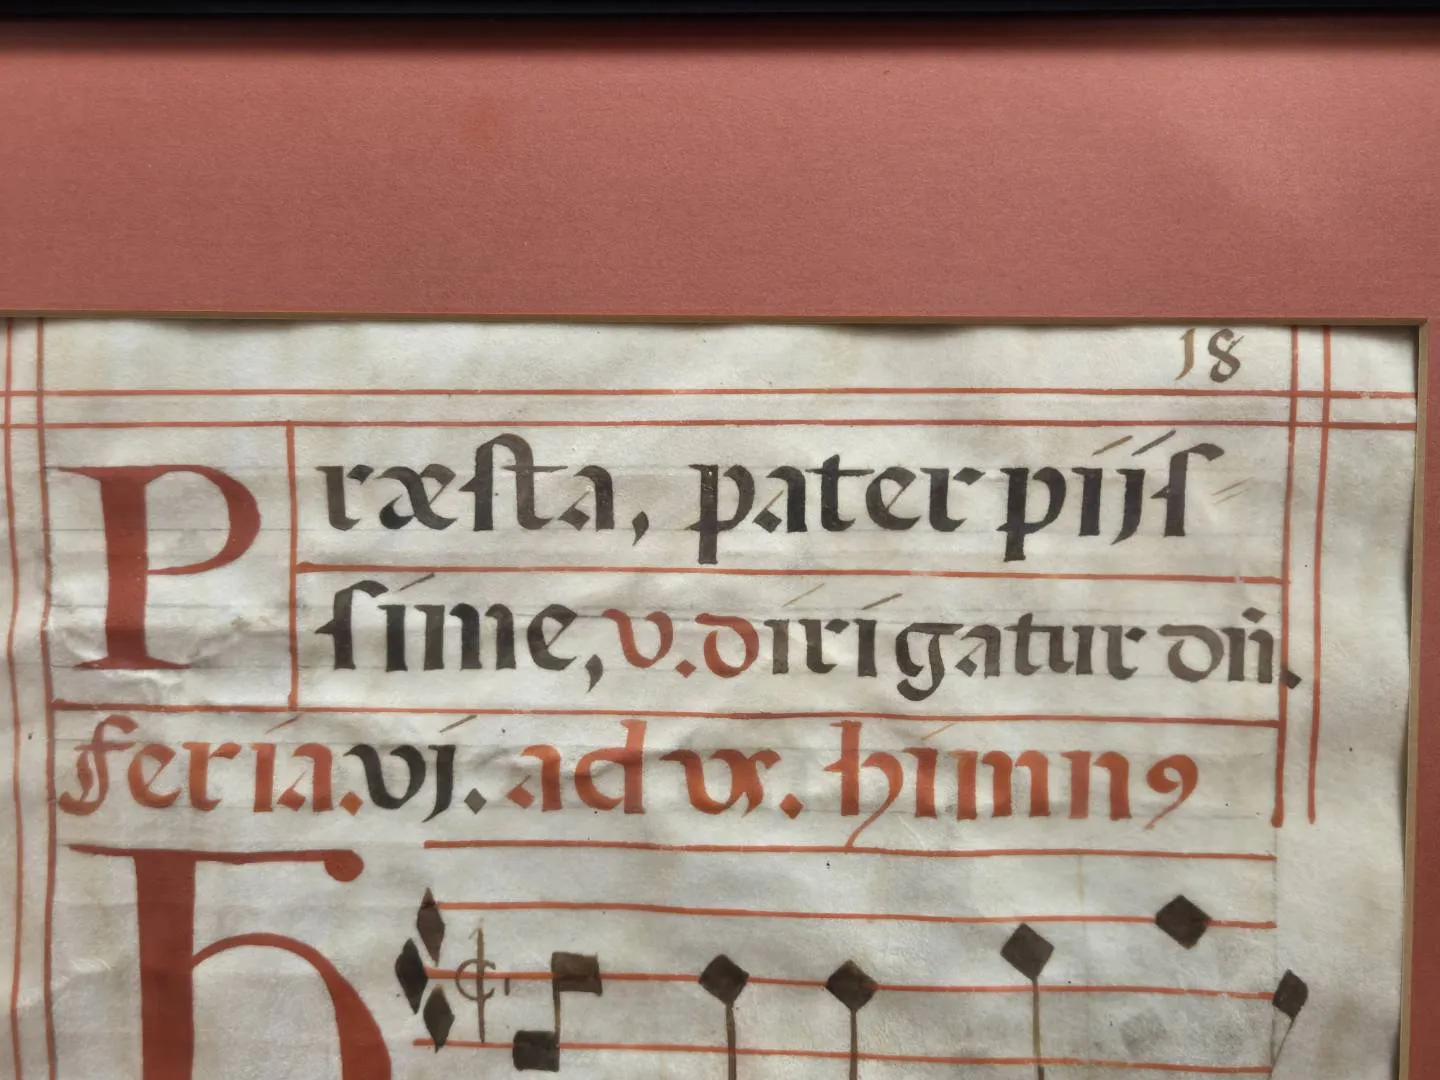 18
Præsta, pater pijs
sime, v. dirigatur dn̄.
feria. vj. ad vs. himnꝯ
h